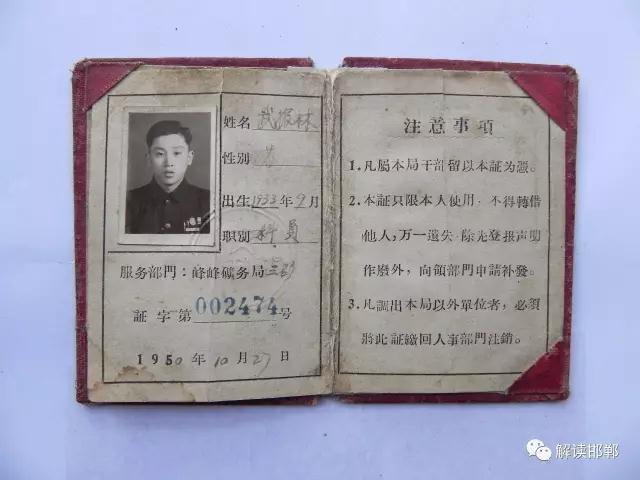 姓名 武振林
性别 男
出生 1933 年 9 月
职别 科員
服务部門：峰峰礦务局三矿
証字第 002474 号
1950 年 10 月 27 日
注意事項
1. 凡屬本局干部留以本証为憑。
2. 本証只限本人使用，不得轉借
他人，万一遺失，除先登报声明
作廢外，向領部門申請补發。
3. 凡調出本局以外單位者，必須
將此証繳回人事部門注銷。
解读邯郸